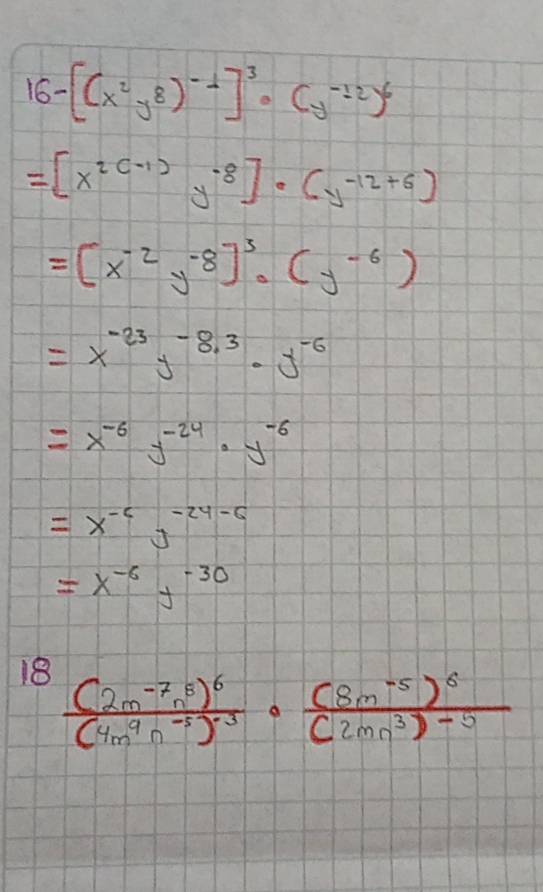 16-[(x²y⁸)⁻¹]³ · (y⁻¹²)⁶
= [x²⁽⁻¹⁾ y⁻⁸] · (y⁻¹²⁺⁶)
= [x⁻² y⁻⁸]³ · (y⁻⁶)
= x⁻²³ y⁻⁸·³ · y⁻⁶
= x⁻⁶ y⁻²⁴ · y⁻⁶
= x⁻⁶ y⁻²⁴⁻⁶
= x⁻⁶ y⁻³⁰
18 (2m⁻⁷n⁸)⁶ / (4m⁹n⁻⁵)⁻³ · (8m⁻⁵)⁶ / (2mn³)⁻⁵